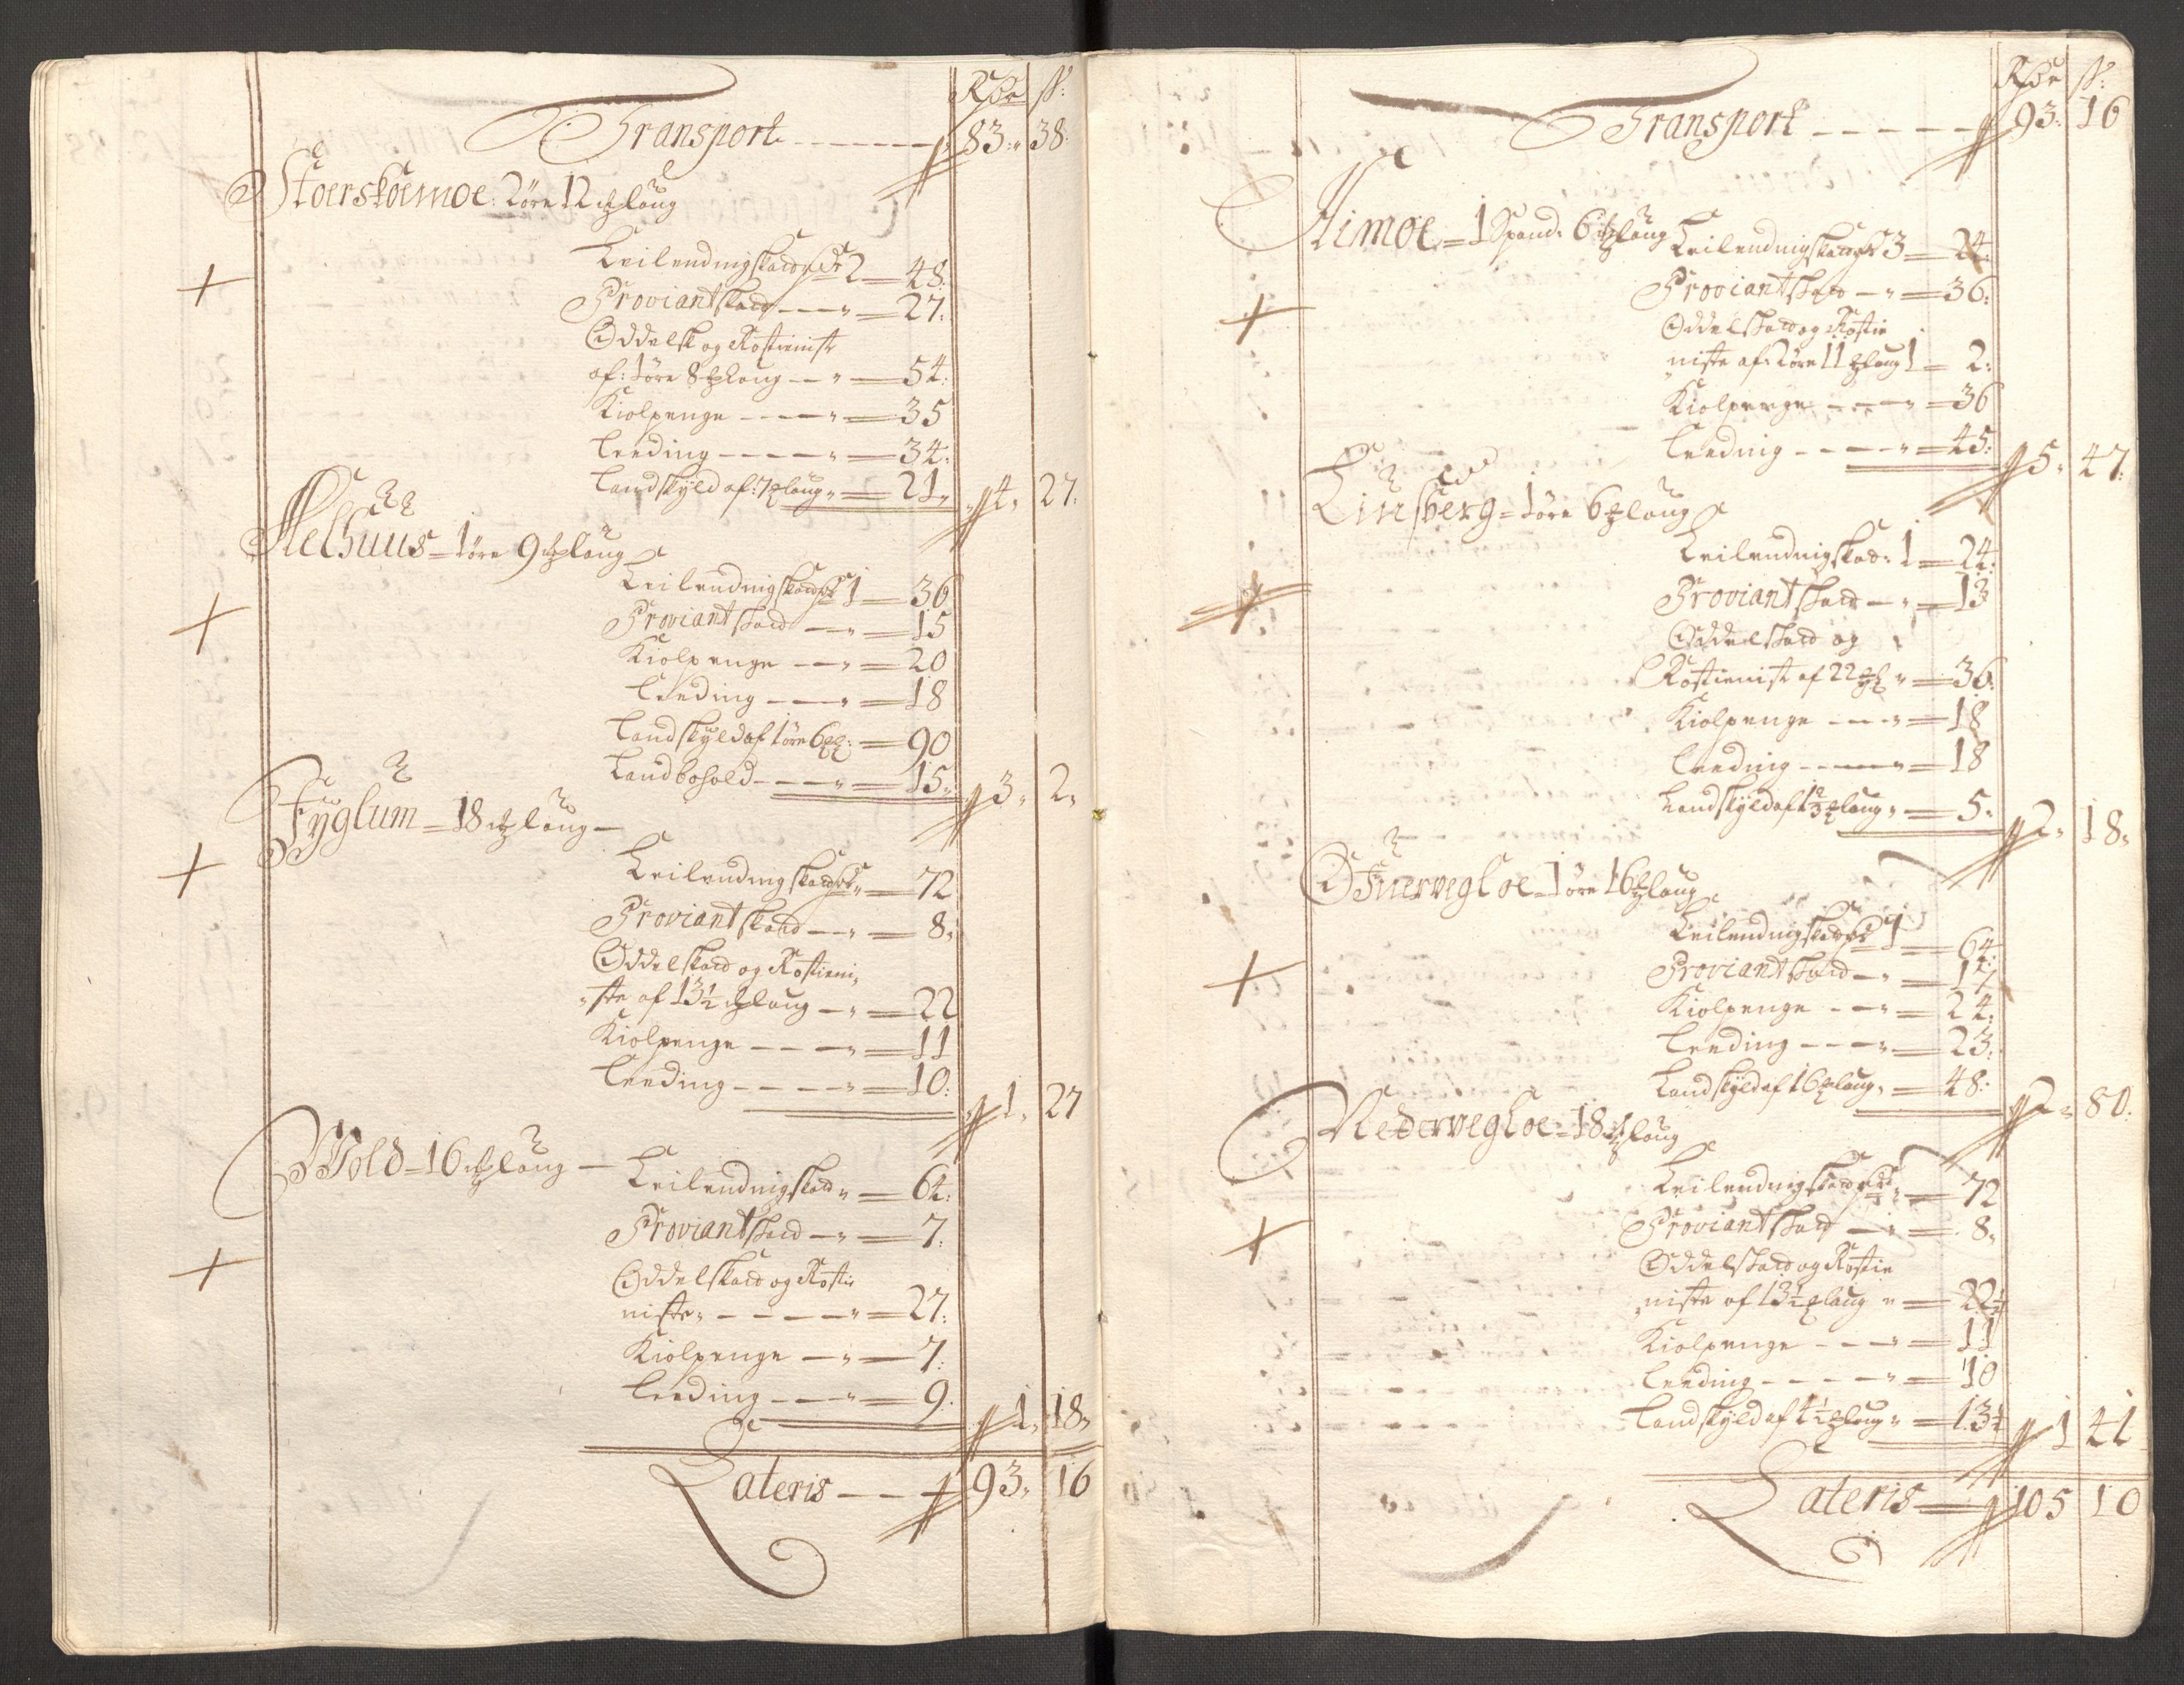 Rdr ß:
Transport - - - - - 83: 38:
Stoerskoemoe: 2 øre 12 mkl: laug
Leilendingskatt Rdr 2 = 48:
Proviantskatt - - - = 27:
Oddelsk: og Rostieniste
af: 1 øre 8 mkl: laug - - = 54:
Kiolpenge - - - - = 35
Leeding - - - - = 34:
Landskyld af: 7 mkl: laug = 21 4 27:
Melhuus = 1 øre 9 mkl: laug
Leilendingskatt Rdr 1 = 36
Proviantskatt - - = 15
Kiolpenge - - = 20
Leeding - - - = 18
Landskyld af 1 øre 6 mkl: = 90
Landbohold - - - = 15 3 2
Fyglum = 18 mkl: laug -
Leilendingskatt Rdr = 72
Proviantskatt - - = 8
Oddelskatt og Rostieni-
ste af 13½ mkl: laug - = 22
Kiolpenge - - - = 11
Leeding - - - - = 10: 1 27
Wold = 16 mkl: laug -
Leilendingskatt = 64:
Proviantskatt - = 7:
Oddelskatt og Rostie
niste - - - - = 27:
Kiolpenge - = 7:
Leeding - - - = 9: 1 18
Lateris - - - 93 16
Rdr ß:
Transport - - - - - 93: 16
Kimoe = 1 Spand 6 mkl: laug
Leilendingskatt Rdr 3 = 24
Proviantskatt - = 36:
Oddelskatt og Rostie
niste af 2 øre 11 mkl: laug 1 = 2:
Kiolpenge - - - = 36
Leeding - - - - = 45: 5 47:
Liusberg = 1 øre 6 mkl: laug
Leilendingskatt: 1 = 24:
Proviantskatt - = 13
Oddelskatt og
Rostieniste af 22 mkl: = 36:
Kiolpenge - - - = 18
Leeding - - - - = 18
Landskyld af 1⅔ mkl: laug = 5 2 18
Øfuervegloe = 1 øre 16 mkl: laug
Leilendingskatt Rdr 1 = 64:
Proviantskatt - = 17
Kiolpenge - - = 24:
Leeding - - - - = 23:
Landskyld af 16 mkl: laug = 48: 2 80:
Nedervegloe = 18 mkl: laug
Leilendingskatt Rdr = 72
Proviantskatt - = 8
Oddelskatt og Rostie
niste af 13½ mkl: laug = 22½
Kiolpenge - - - = 11
Leeding - - - - = 10
Landskyld af 4½ mkl: laug = 13½ 1 41
Lateris 105 10